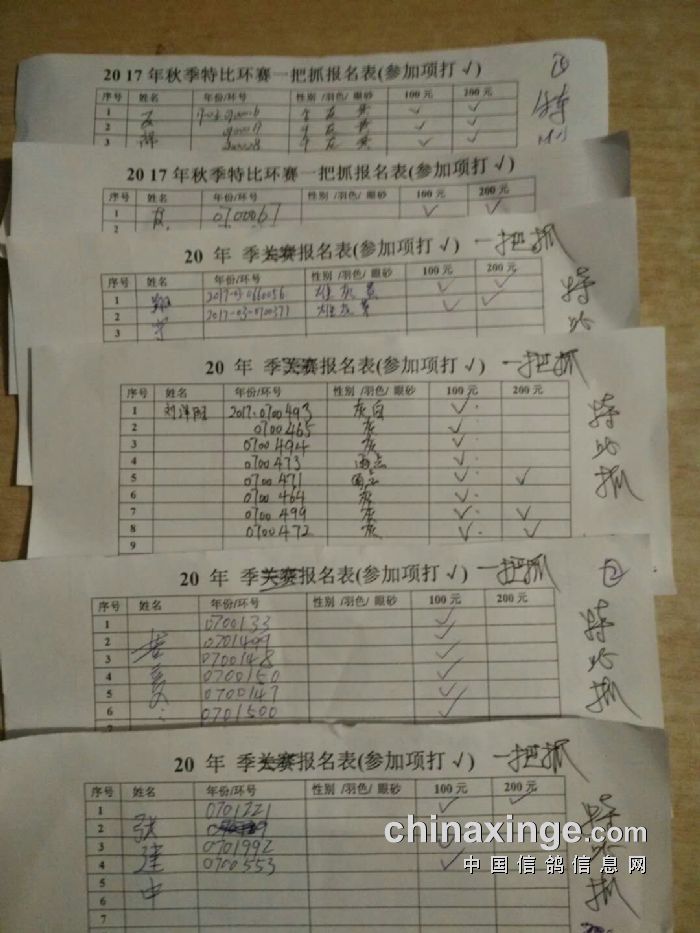 2017年秋季特比环赛一把抓报名表(参加项打 √)
序号 姓名 年份/环号 性别 /羽色/ 眼砂 100 元 200 元
1 √ √
2 √ √
3 √ √
特
2017年秋季特比环赛一把抓报名表(参加项打 √)
序号 姓名 年份/环号 性别 /羽色/ 眼砂 100 元 200 元
1 0700067 √ √
2
20 年 季 报名表(参加项打 √) 一把抓
序号 姓名 年份/环号 性别 /羽色/ 眼砂 100 元 200 元
1 2017-03-0660056 雄灰黄 √ √
2 2017-03-0700371 √ √
3
特比
20 年 季 报名表(参加项打 √) 一把抓
序号 姓名 年份/环号 性别 /羽色/ 眼砂 100 元 200 元
1 2017-0700493 灰白 √
2 0700465 灰 √
3 0700494 灰 √
4 0700473 雨点 √
5 0700471 雨点 √ √
6 0700464 灰 √
7 0700499 灰 √ √
8 0700472 灰 √ √
9
特比抓
20 年 季 报名表(参加项打 √) 一把抓
序号 姓名 年份/环号 性别 /羽色/ 眼砂 100 元 200 元
1 0700133 √
2 0701499 √
3 0700148 √
4 0700150 √
5 0700147 √
6 0701500 √
特比抓
20 年 季 报名表(参加项打 √) 一把抓
序号 姓名 年份/环号 性别 /羽色/ 眼砂 100 元 200 元
1 0701221 √ √
2 张
3 建 0701992 √
4 0700553 √
5 中
6
7
特比抓
chinaxinge.com
中国信鸽信息网